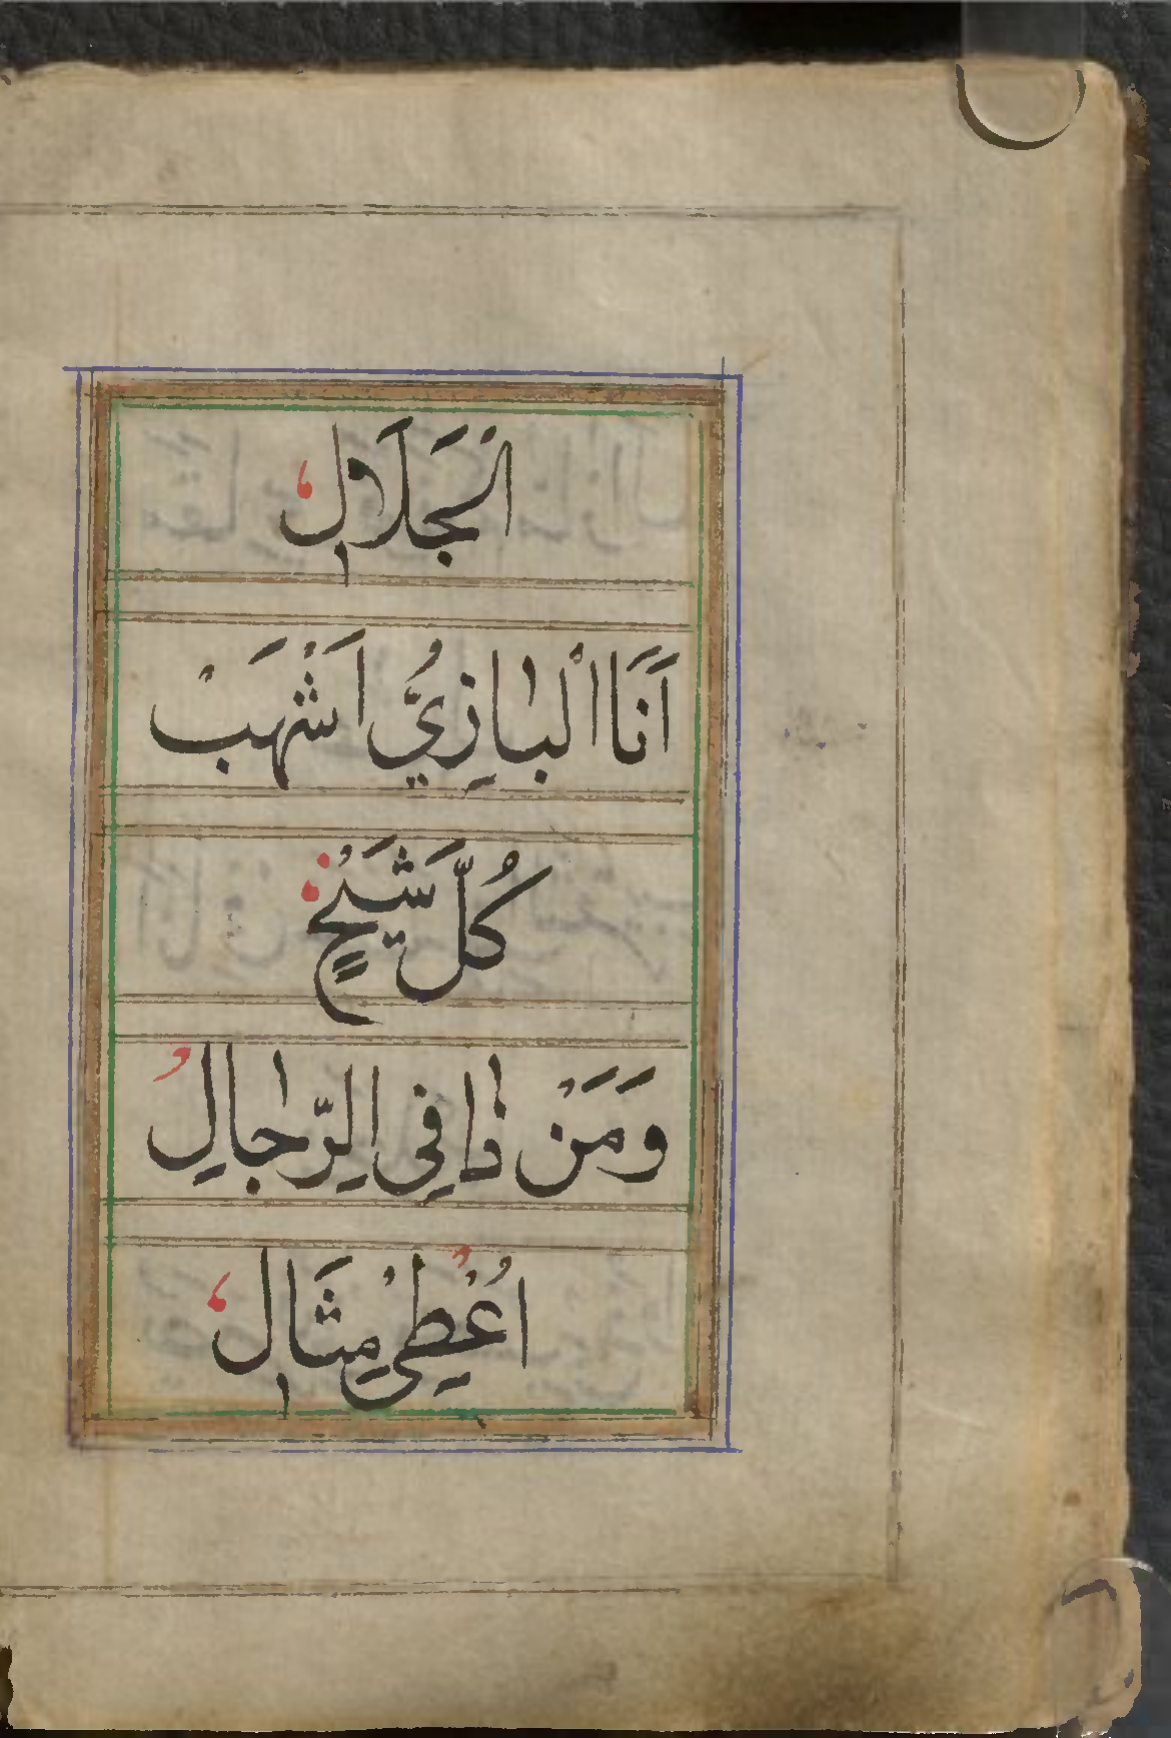 الْجَلَالِ
اَنَا الْبَازِيُّ اَشْهَبْ
كُلَّ شَيْخٍ
وَمَنْ ذَا فِي الرِّجَالِ
اُعْطِيْ مِثَالِ